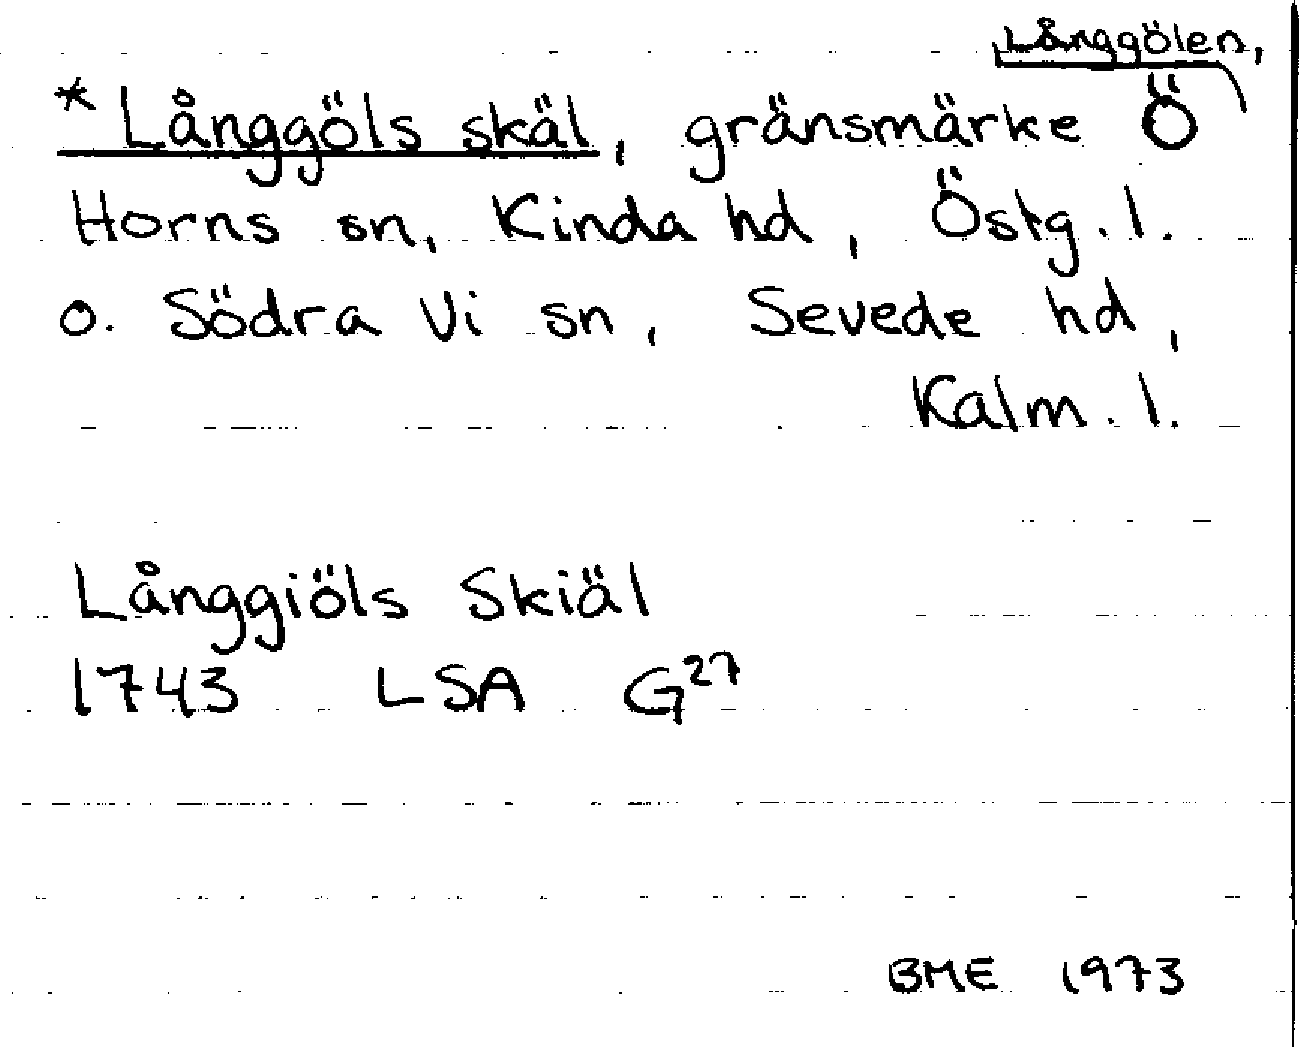 Långgölen,
* Långgöls skäl, gränsmärke Ö
Horns sn, Kinda hd, Östg. l.
o. Södra Vi sn, Sevede hd,
Kalm. l.
Långgiöls Skiäl
1743 LSA G27
BME 1973